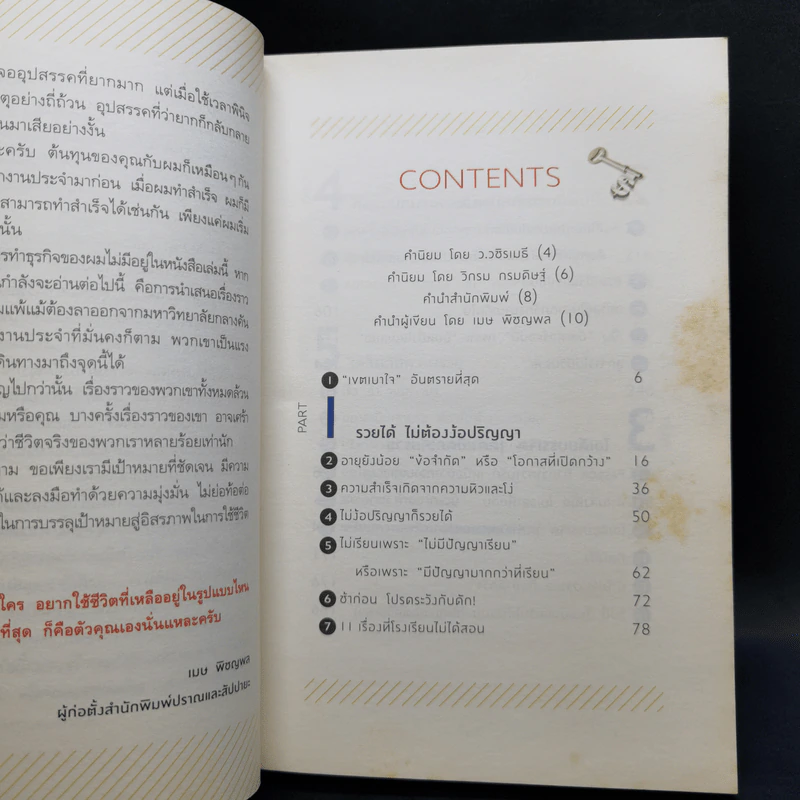 จออุปสรรคที่ยากมาก แต่เมื่อใช้เวลาพินิจ
ตุอย่างถี่ถ้วน อุปสรรคที่ว่ายากก็กลับกลาย
นมาเสียอย่างงั้น
ะครับ ต้นทุนของคุณกับผมก็เหมือนๆ กัน
างานประจำมาก่อน เมื่อผมทำสำเร็จ ผมก็มี
สามารถทำสำเร็จได้เช่นกัน เพียงแค่ผมเริ่ม
นั้น
รทำธุรกิจของผมไม่มีอยู่ในหนังสือเล่มนี้ หาก
กำลังจะอ่านต่อไปนี้ คือการนำเสนอเรื่องราว
มแพ้แม้ต้องลาออกจากมหาวิทยาลัยกลางคัน
งานประจำที่มั่นคงก็ตาม พวกเขาเป็นแรง
ดินทางมาถึงจุดนี้ได้
ญไปกว่านั้น เรื่องราวของพวกเขาทั้งหมดล้วน
มหรือคุณ บางครั้งเรื่องราวของเขา อาจเศร้า
ว่าชีวิตจริงของพวกเราหลายร้อยเท่านัก
ตาม ขอเพียงเรามีเป้าหมายที่ชัดเจน มีความ
ด้และลงมือทำด้วยความมุ่งมั่น ไม่ย่อท้อต่อ
ในการบรรลุเป้าหมายสู่อิสรภาพในการใช้ชีวิต
ใคร อยากใช้ชีวิตที่เหลืออยู่ในรูปแบบไหน
ที่สุด ก็คือตัวคุณเองนั่นแหละครับ
เมษ พิชญพล
ผู้ก่อตั้งสำนักพิมพ์ปราณและสัปปายะ
CONTENTS
คำนิยม โดย ว.วชิรเมธี (4)
คำนิยม โดย วิกรม กรมดิษฐ์ (6)
คำนำสำนักพิมพ์ (8)
คำนำผู้เขียน โดย เมษ พิชญพล (10)
1 "เขตเบาใจ" อันตรายที่สุด 6
PART 1 รวยได้ ไม่ต้องง้อปริญญา
2 อายุยังน้อย "ข้อจำกัด" หรือ "โอกาสที่เปิดกว้าง" 16
3 ความสำเร็จเกิดจากความหิวและโง่ 36
4 ไม่ง้อปริญญาก็รวยได้ 50
5 ไม่เรียนเพราะ "ไม่มีปัญญาเรียน"
หรือเพราะ "มีปัญญามากกว่าที่เรียน" 62
6 ช้าก่อน โปรดระวังกับดัก! 72
7 11 เรื่องที่โรงเรียนไม่ได้สอน 78